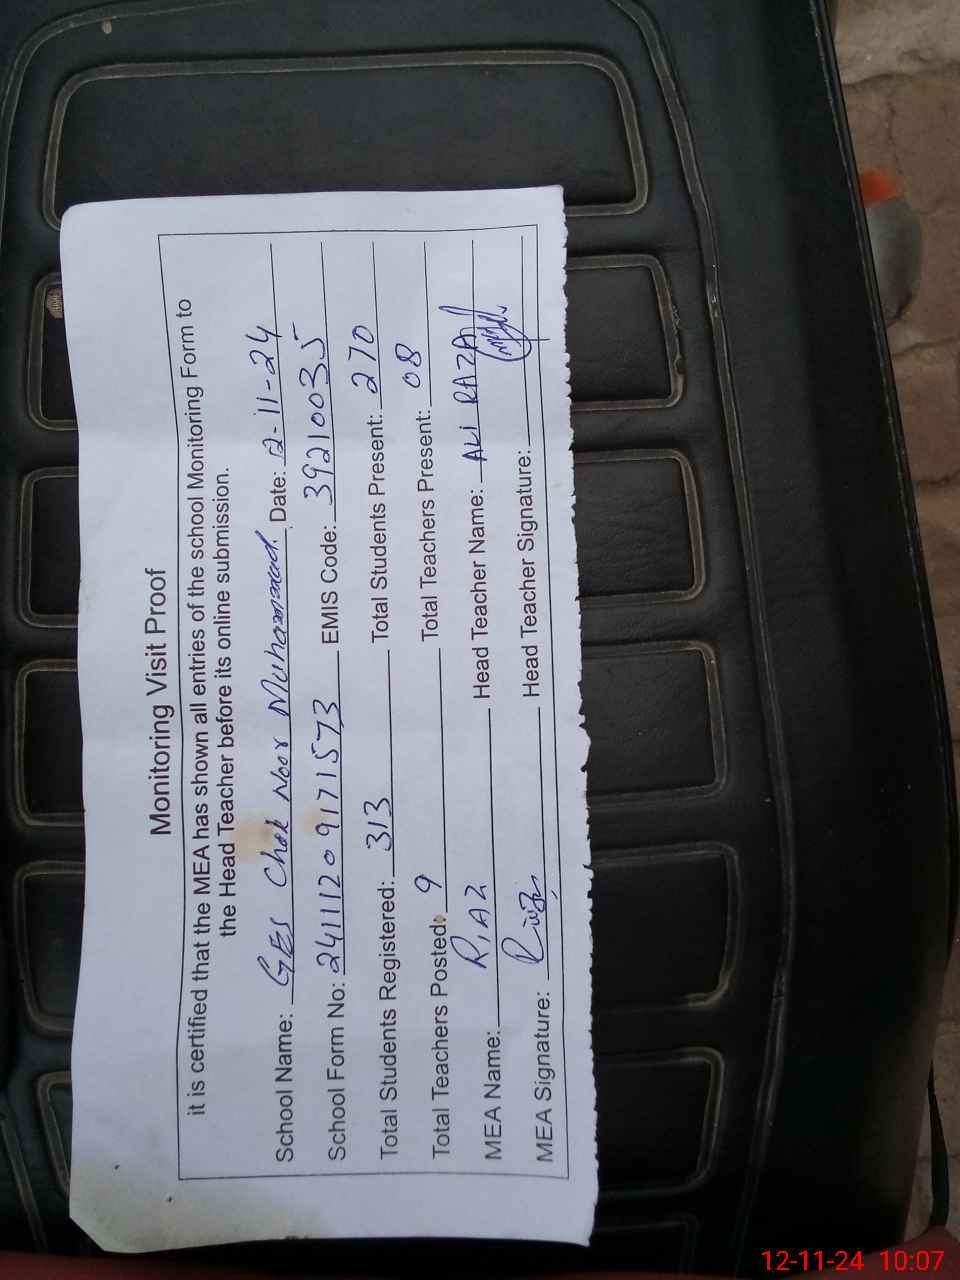 Monitoring Visit Proof
it is certified that the MEA has shown all entries of the school Monitoring Form to
the Head Teacher before its online submission.
School Name: GES Chak Noor Muhammad. Date: 12-11-24
School Form No: 24111209171573 EMIS Code: 39210035
Total Students Registered: 313 Total Students Present: 270
Total Teachers Posted: 9 Total Teachers Present: 08
MEA Name: RIAZ Head Teacher Name: ALI RAZA
MEA Signature: Head Teacher Signature:
12-11-24 10:07